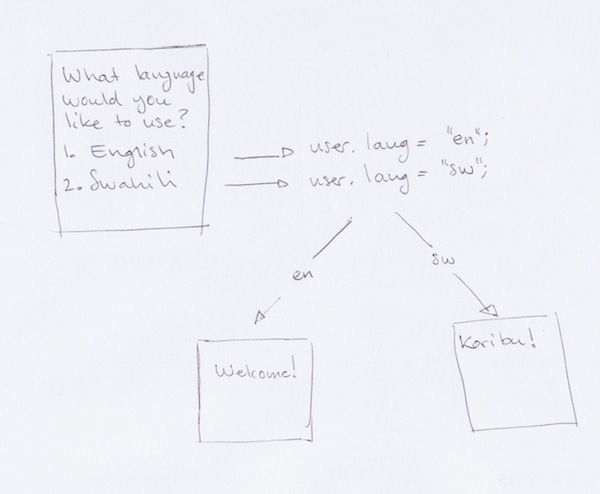 What language
would you
like to use?
1. English
2. Swahili
user.lang = "en";
user.lang = "sw";
en
sw
Welcome!
Karibu!